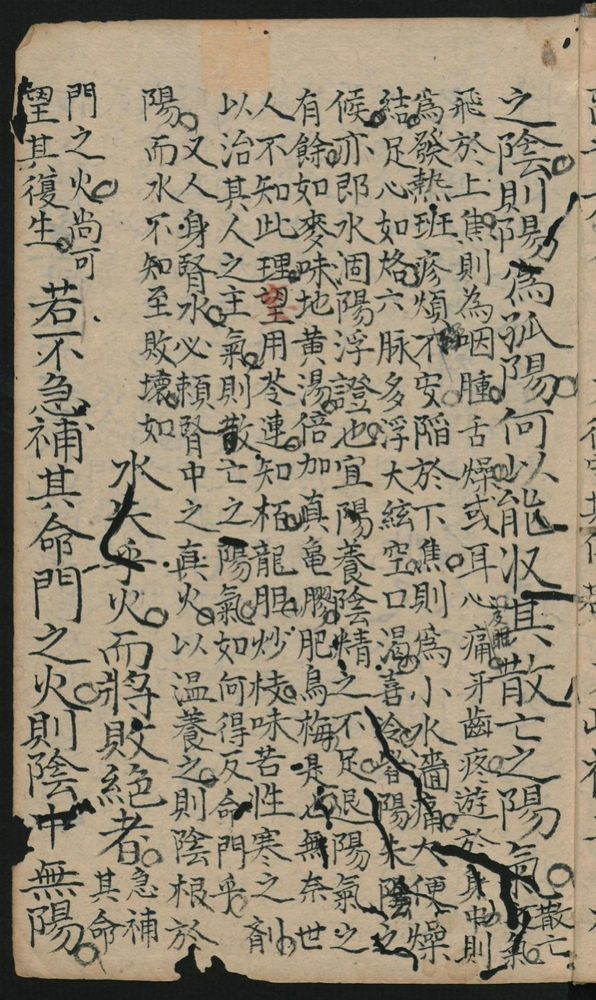 之陰則陽為孤陽何以能収其散亡之陽氣散亡氣
飛於上焦則為咽腫舌燥或耳心痛牙齒疼遊於身中則
為發熱班疹煩不安陷於下焦則為小水嗇痛大便燥
結足心如烙六脉多浮大絃空口渴喜冷皆陽未陰之
候亦郎水涸陽浮證也宜陽養陰精之不足退陽氣之
有餘如麥味地黃湯倍加真龜膠肥烏梅是也無奈世
人不知此理望用芩連知栢龍胆炒枝味苦性寒之劑
以治其人之主氣則散亡之陽氣如何得反命門乎
又人身腎水必頼腎中之真火以温養之則陰根於
陽而水不知至敗壞如
水失乎火而將敗絕者急補其命
門之火尚可
望其復生若不急補其命門之火則陰中無陽